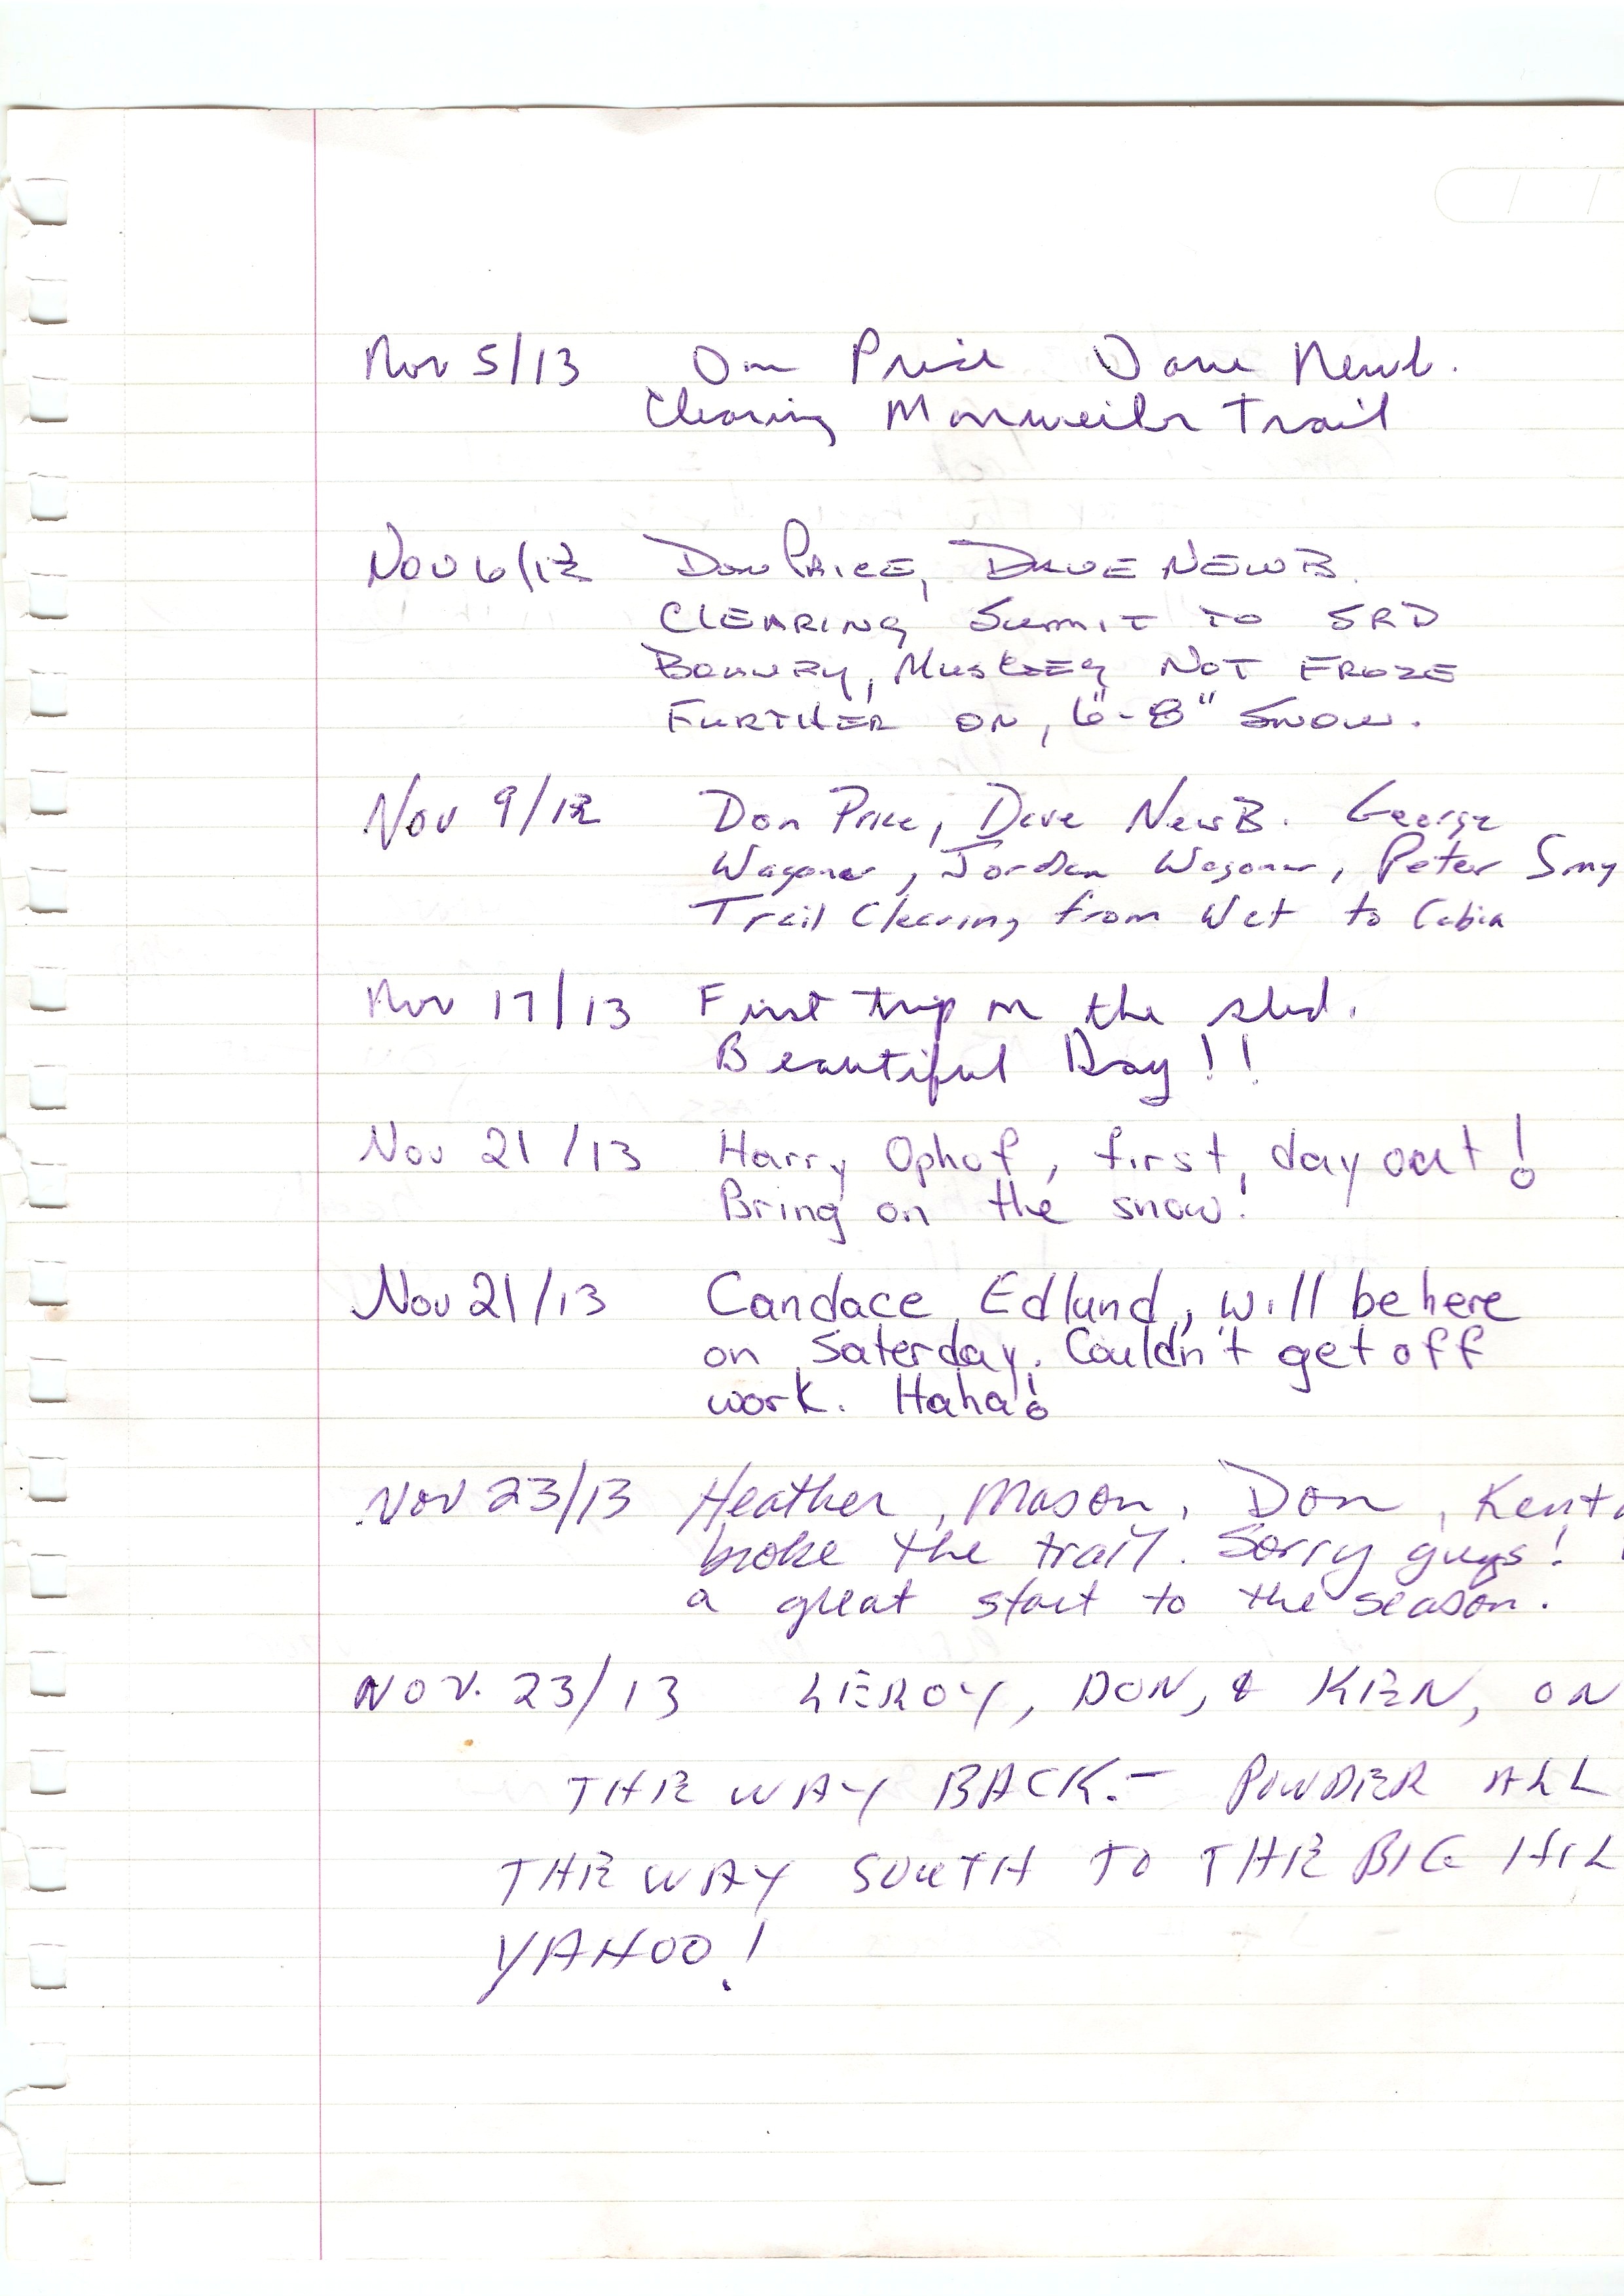 Nov 5/13 Don Price Dave Newb.
Clearing Monweiler Trail
Nov 6/13 DON PRICE, DAVE NEWB.
CLEARING SUMMIT TO SRD
MUSKEG NOT FROZE
FURTHER ON, 6"-8" SNOW.
Nov 9/13 Don Price, Dave NewB. George
Wagoner, Jordan Wagoner, Peter Smy
Trail Clearing from Wet to Cabin
Nov 17/13 First trip on the sled.
Beautiful Day!!
Nov 21/13 Harry Ophof, first day out!
Bring on the snow!
Nov 21/13 Candace Edlund, will be here
on Saterday. Couldn't get off
work. Haha!
Nov 23/13 Heather, Mason, Don, Kent
broke the trail. Sorry guys!
a great start to the season.
NOV. 23/13 LEROY, DON, & KEN, ON
THE WAY BACK. - POWDER ALL
THE WAY SOUTH TO THE BIG HIL
YAHOO!